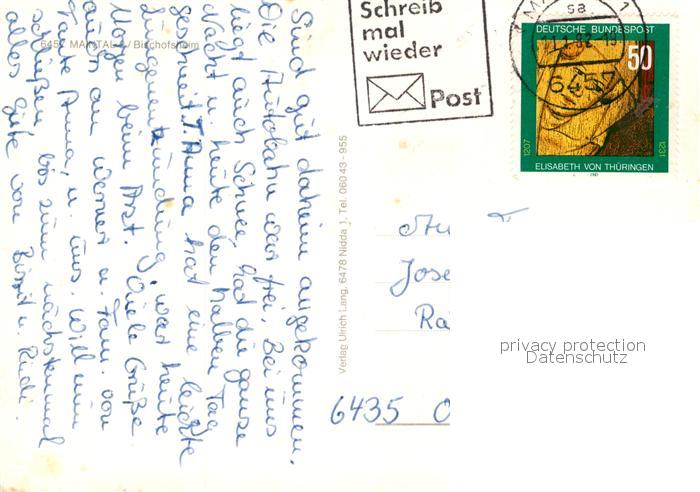 6457 MAINTAL / Bischofsheim
Sind gut daheim angekommen.
Die Autobahn war frei. Bei uns
liegt auch Schnee, hat die ganze
Nacht u. heute den halben Tag
geschneit. T. Anna hat eine leichte
Lungenentzündung, war heute
Morgen beim Arzt. Viele Grüße
auch an Werner u. Fam. von
Tante Anna, u. uns. Will nun
schließen bis zum nächstenmal
alles gute von Birgit u. Rüdi.
Verlag Ulrich Lang, 6478 Nidda 1, Tel. 060 43 - 955
Schreib
mal
wieder
Post
DEUTSCHE BUNDESPOST
50
1207
1231
ELISABETH VON THÜRINGEN
sa
6457
Jose
6435 O
privacy protection
Datenschutz